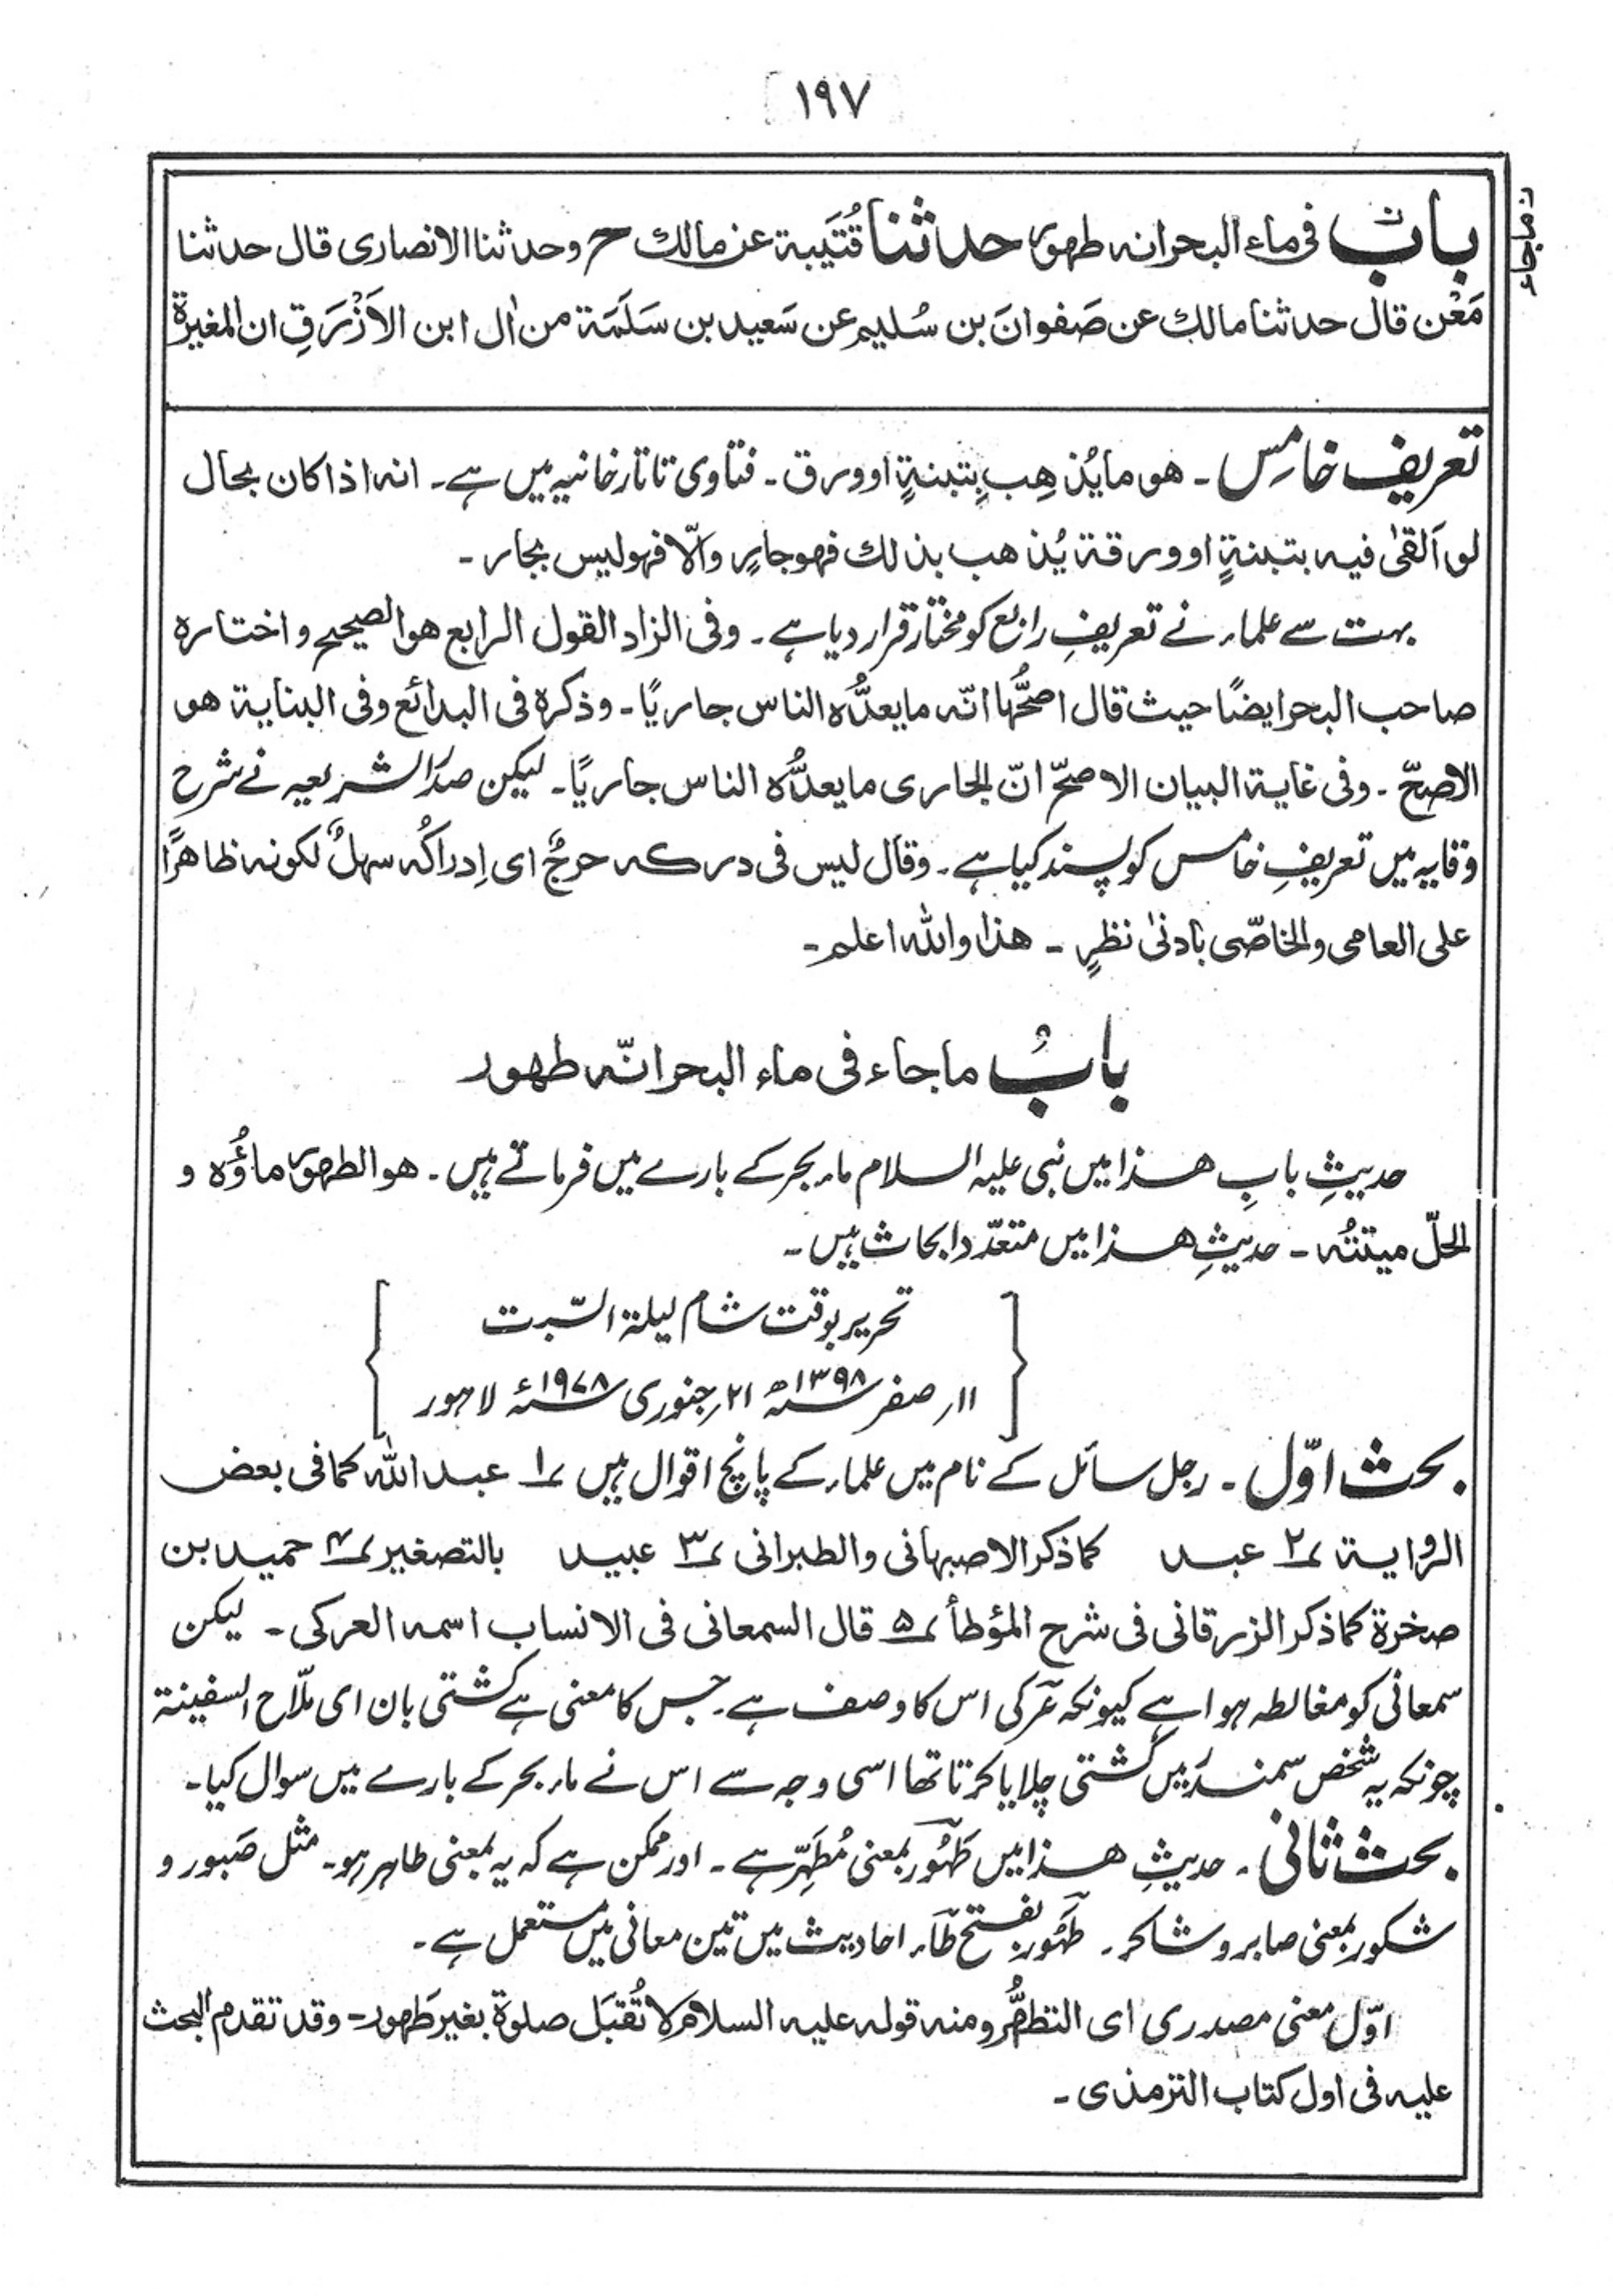 ١٩٧
بابٌ فی ماء البحر انه طهور حدثنا قُتَیبة عن مالك ح وحدثنا الانصاری قال حدثنا
ن ماجاء
مَعْن قال حدثنا مالك عن صَفوانَ بن سُلیم عن سَعید بن سَلَمَة من اٰل ابن الاَزْرَقِ ان المغیرة
تعریف خامس ۔ هو ما یُذهِب بِتبنةٍ او ورق ۔ فتاوی تاتارخانیہ میں ہے۔ انه اذا کان بحال
لو اَلقیٰ فیه بتبنةٍ او ورقة یُذهب بذلك فهو جارٍ والّا فهو لیس بجار ۔
بہت سے علماء نے تعریفِ رابع کو مختار قرار دیا ہے ۔ وفی الزاد القول الرابع هو الصحیح و اختاره
صاحب البحر ایضًا حیث قال اصحُّها انّه ما یعدُّه الناس جاریًا ۔ وذکره فی البدائع وفی البنایة هو
الاصحّ ۔ وفی غایة البیان الاصحّ انّ الجاری ما یعدُّه الناس جاریًا۔ لیکن صدر الشریعہ نے شرح
وقایہ میں تعریفِ خامس کو پسند کیا ہے۔ وقال لیس فی درکه حرجٌ ای اِدراکُه سهلٌ لکونه ظاهرًا
علی العامی والخاصّی بادنیٰ نظرٍ ۔ هذا والله اعلم ۔
بابُ ما جاء فی ماء البحر انّه طهور
حدیثِ بابِ ھذا میں نبی علیہ السلام ماء بحر کے بارے میں فرماتے ہیں ۔ هو الطهور ماؤُه و
الحلّ میتتُه ۔ حدیثِ ھذا میں متعدّد ابحاث ہیں ۔
تحریر بوقت شام لیلۃ السّبت
۱۱ ر صفر ۱۳۹۸ھ ۲۱ ر جنوری ۱۹۷۸ء لاہور
بحث اوّل ۔ رجل سائل کے نام میں علماء کے پانچ اقوال ہیں ۱ عبد الله کما فی بعض
الروایة ۲ عبد کما ذکر الاصبهانی والطبرانی ۳ عبید بالتصغیر ۴ حمید بن
صخرة کما ذکر الزرقانی فی شرح المؤطأ ۵ قال السمعانی فی الانساب اسمه العرکی ۔ لیکن
سمعانی کو مغالطہ ہوا ہے کیونکہ عَرَکی اس کا وصف ہے۔ جس کا معنی ہے کشتی بان ای ملّاح السفینة
چونکہ یہ شخص سمندر میں کشتی چلایا کرتا تھا اسی وجہ سے اس نے ماء بحر کے بارے میں سوال کیا۔
بحث ثانی ۔ حدیثِ ھذا میں طَهُور بمعنی مُطَہِّر ہے ۔ اور ممکن ہے کہ یہ بمعنی طاہر ہو۔ مثل صَبور و
شکور بمعنی صابر و شاکر ۔ طَهُور بفتح طاء احادیث میں تین معانی میں مستعمل ہے ۔
اوّل معنی مصدری ای التطهُّر ومنه قوله علیه السلام لا تُقبَل صلوة بغیر طَهور ۔ وقد تقدم البحث
علیه فی اول کتاب الترمذی ۔